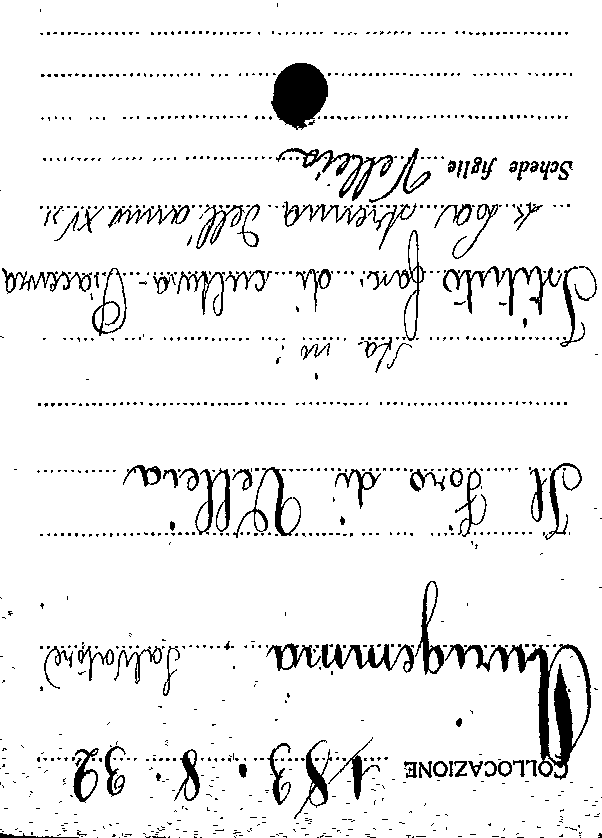 COLLOCAZIONE 183.8.32
Aurigemma (Salvatore)
Il Foro di Velleia
Sta in:
Istituto fan. di cultura - Piacenza
strenna dell'anno XV"
Schede figlie Velleia